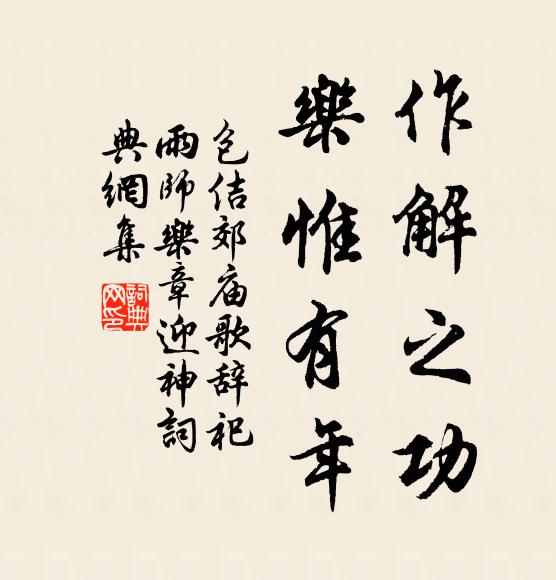 作解之功
樂惟有年
包佶郊庙歌辞祀
雨师樂章迎神詞
典網集
詞典网印